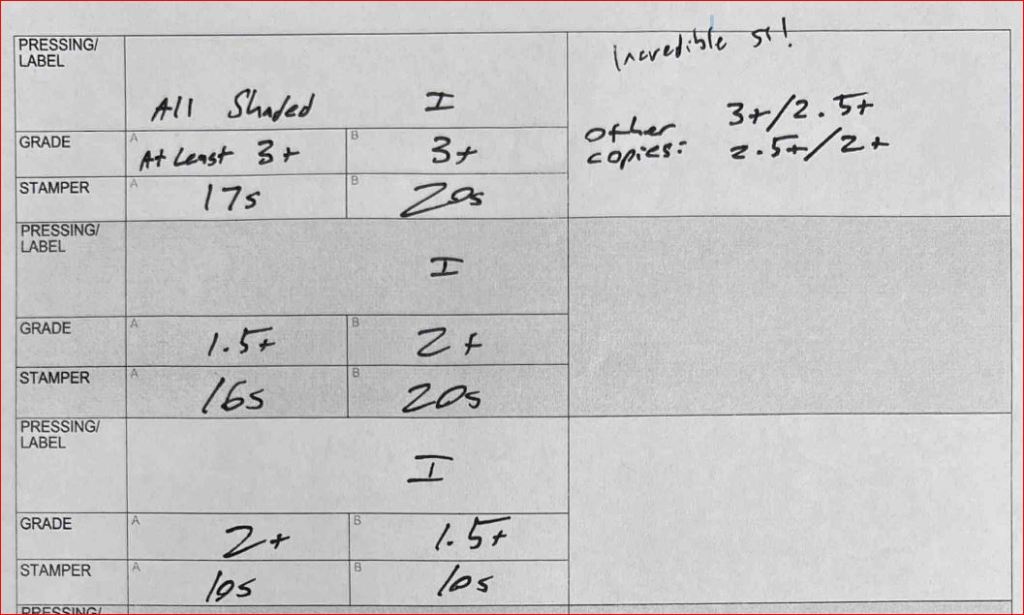 PRESSING/
LABEL
All Shaded I
Incredible st!
GRADE
A At Least 3+
B 3+
Other copies: 3+/2.5+
2.5+/2+
STAMPER
A 17s
B 20s
PRESSING/
LABEL
I
GRADE
A 1.5+
B 2+
STAMPER
A 16s
B 20s
PRESSING/
LABEL
I
GRADE
A 2+
B 1.5+
STAMPER
A 10s
B 10s
PRESSING/